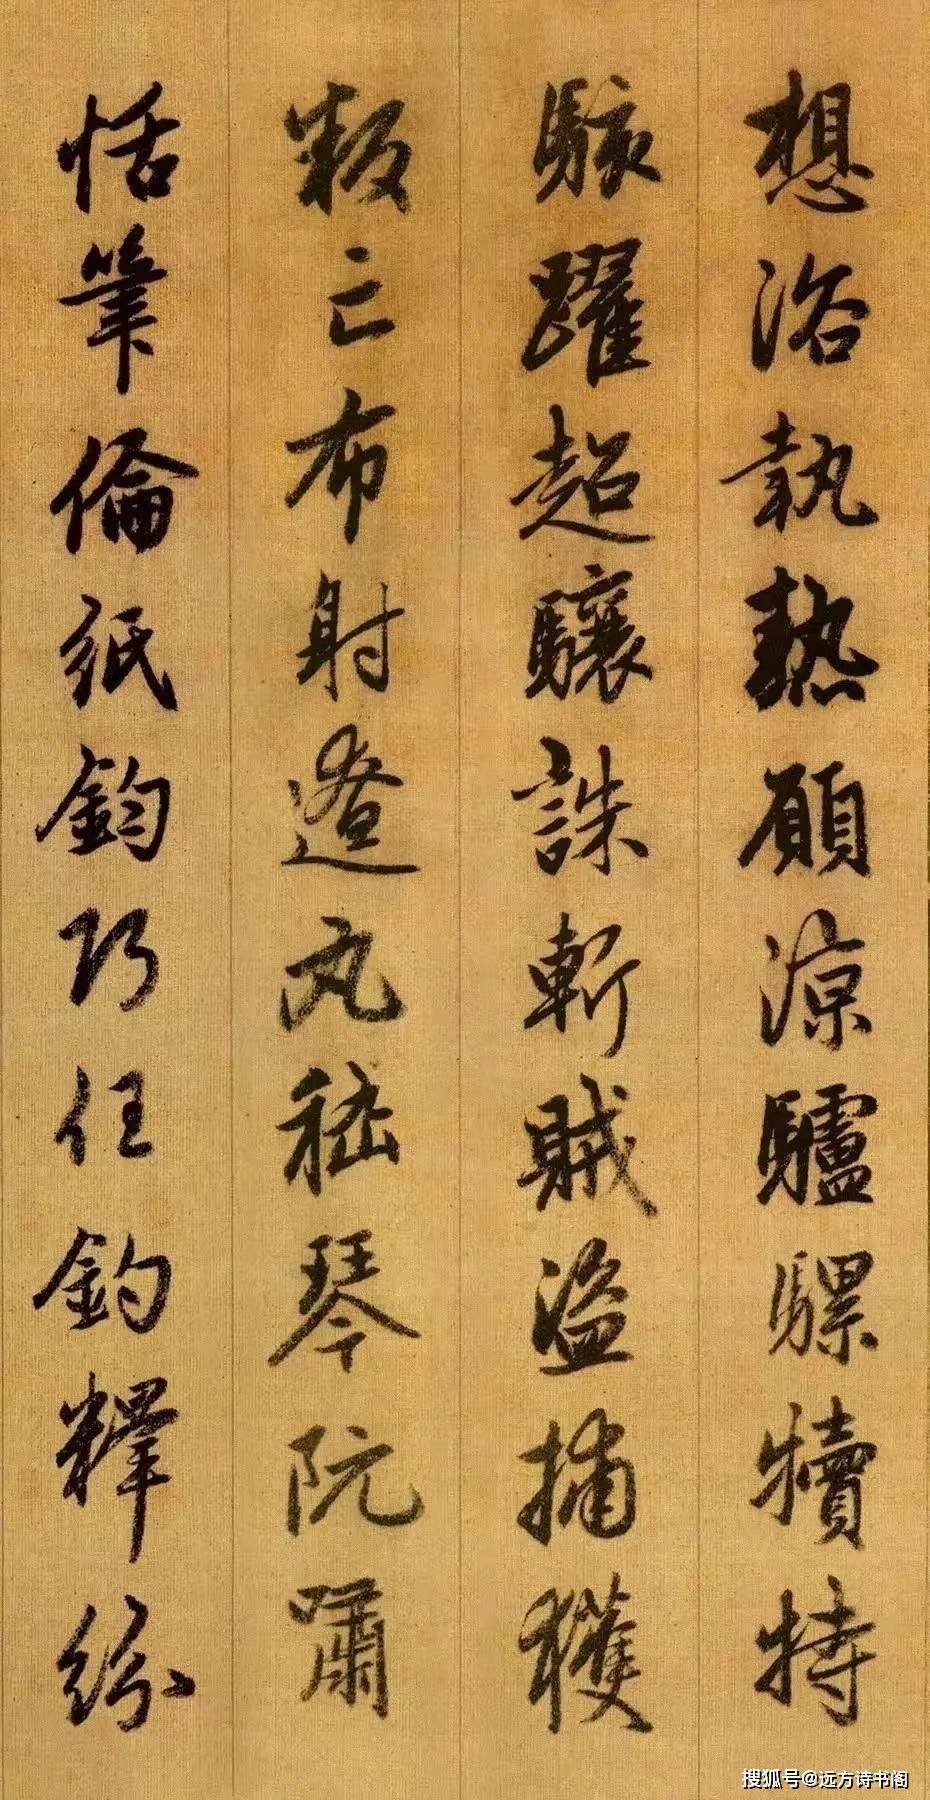 想浴執熱願涼驢騾犢特
駭躍超驤誅斬賊盜捕獲
叛亡布射遼丸嵇琴阮嘯
恬筆倫紙鈞巧任釣釋紛
搜狐号@远方诗书阁